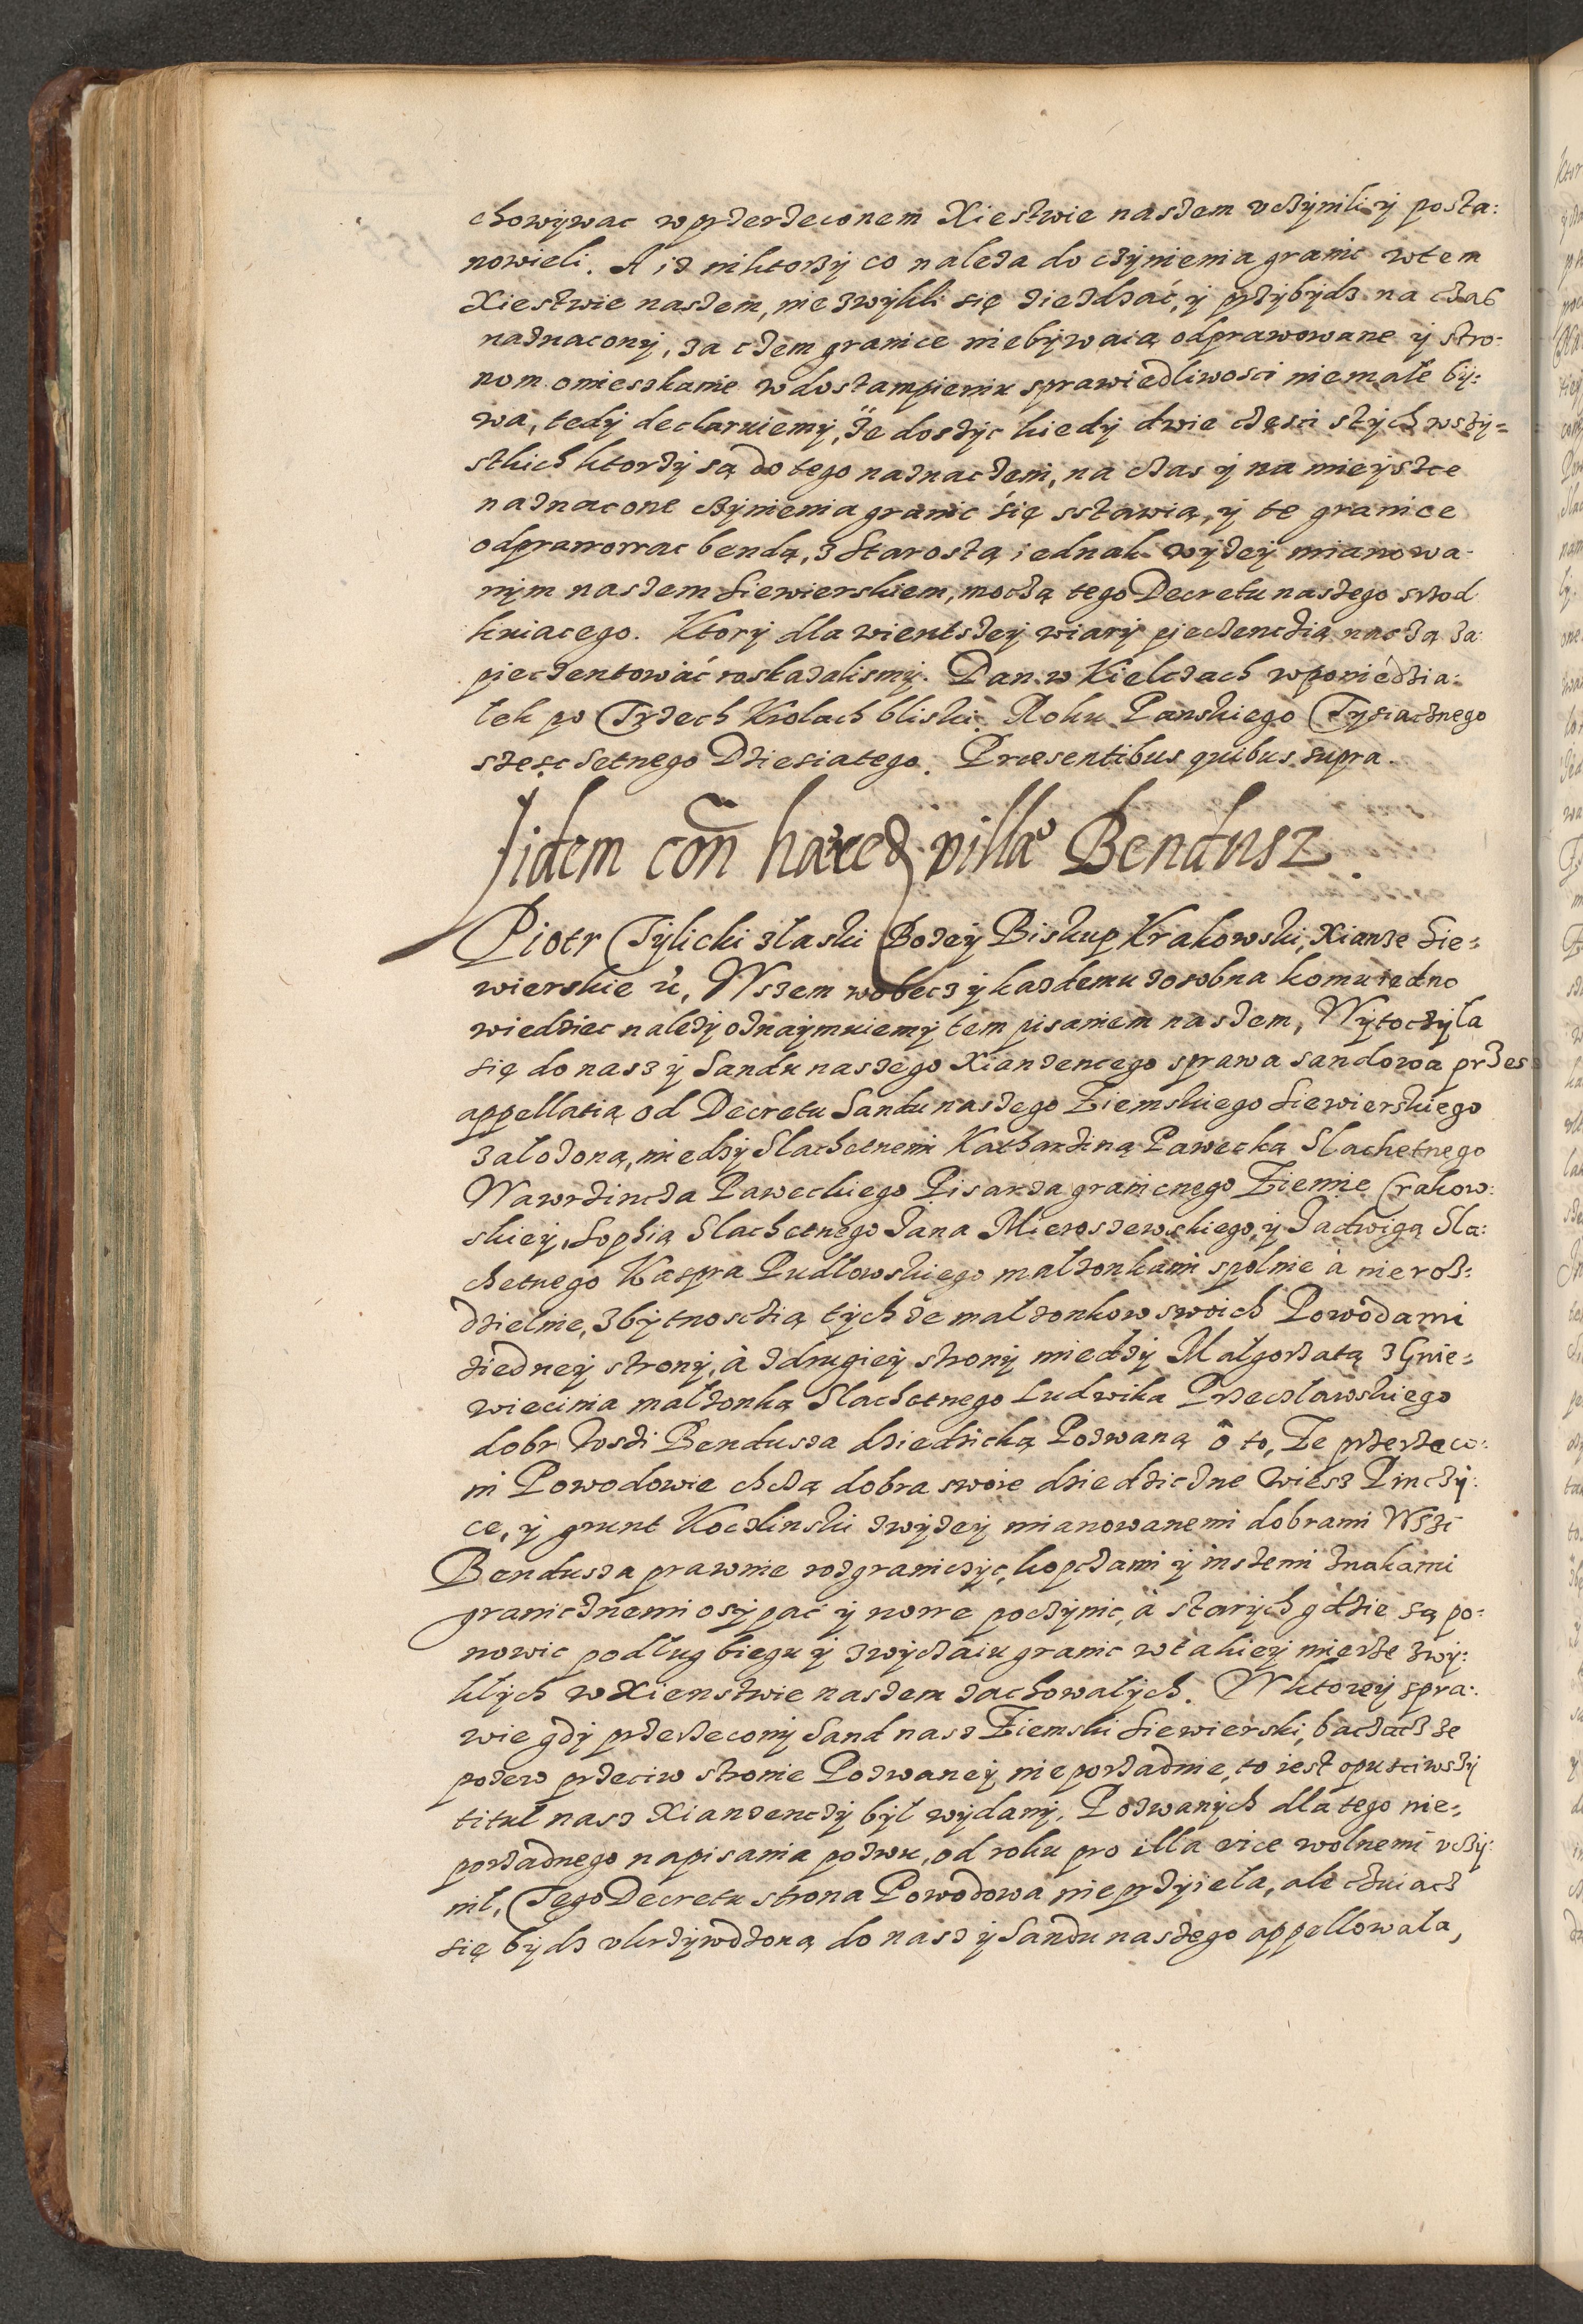 chowywac w przerzeconem Xiestwie naszem uczynili y posta:
nowieli. A iz niktorzy co naleza do czynienia granic w tem
Xiestwie naszem, nie zwykli się ziezdzać, y przybydz na czas
naznaczony, za czem granice niebywaią odprawowane y stro:
nom omieszkanie w dostampieniu sprawiedliwosci niemałe by:
wa, tedy declaruiemy, ze doszyc kiedy dwie częsci stych wszy=
stkich ktorzy są do tego naznaczeni, na czas y na mieysce
naznaczone czynienia granic się sstawią, y te granice
odprawowac bendą, z Starostą iednak wyzey mianowa-
nym naszem Siewierskiem, moczą tego Decretu naszego szrod
kuiacego. Ktory dla wientszey wiary pieczenczią naszą za:
pieczentowáć roskazalismy. Dan w Kielczach w poniedzia:
łek po Trzech Krolach bliski. Roku Panskiego Tysiacznego
szesc setnego Dziesiatego. Præsentibus quibus supra.
Iidem con hæred villæ Bendusz.
Piotr Tylicki z łaski Bozey Biskup Krakowski, Xianze Sie=
wierskie etc, Wszem wobecz y kazdemu zosobna komu iedno
wiedziec nalezy oznaymuiemy tem pisaniem naszem, Wytoczyła
się do nasz y Sandu naszego Xianzencego sprawa sandowa przes
appellatią od Decretu Sandu naszego Ziemskiego Siewierskiego
założoną, miedzy Slachetnemi Katharziną Pawęcką Slachetnego
Wawrzincza Paweckiego Pisarza granicnego Ziemie Crakow:
skiey, Sophią Slachetnego Jana Mieroszewskiego, y Jadwigą Sla:
chetnego Kaspra Pudłowskiego małzonkami spolnie à nieroz:
dzielnie, z bytnosczią tychze małzonkow swoich Powodami
ziedney strony, à zdrugiey strony miedzy Małgorzatą z Gnie=
wiecinia małzonką Slachetnego Ludwika Przeczławskiego
dobr Wszi Bendusza dziedzicką Pozwaną o to, Ze przerzeco:
ni Powodowie chczą dobra swoie dziedziczne Wiesz Pinczy:
ce, y grunt Koczlinski z wyzey mianowanemi dobrami Wszi
Bendusza prawnie rozgraniczyc, kopczami y inszemi znakami
granicznemi osypać y nowe poczynic, à starych gdzie są po:
nowic podług biegu y zwyczaiu granic w takiey mierze zwy:
kłych w Xienstwie naszem zachowałych. W ktorey spra:
wie gdy przerzecony Sand nasz Ziemski Siewierski, baczacz ze
pozew przeciw stronie Pozwaney nieporzadnie, to iest opusciwszy
titul nasz Xianzenczy był wydany, Pozwanych dla tego nie=
porzadnego napisania pozwu, od roku pro illa vice wolnemi uczy:
nił, Tego Decretu strona Powodowa nieprzyieła, ale czuiacz
się bydz ukrzywdzoną do nasz y Sandu naszego appellowała,